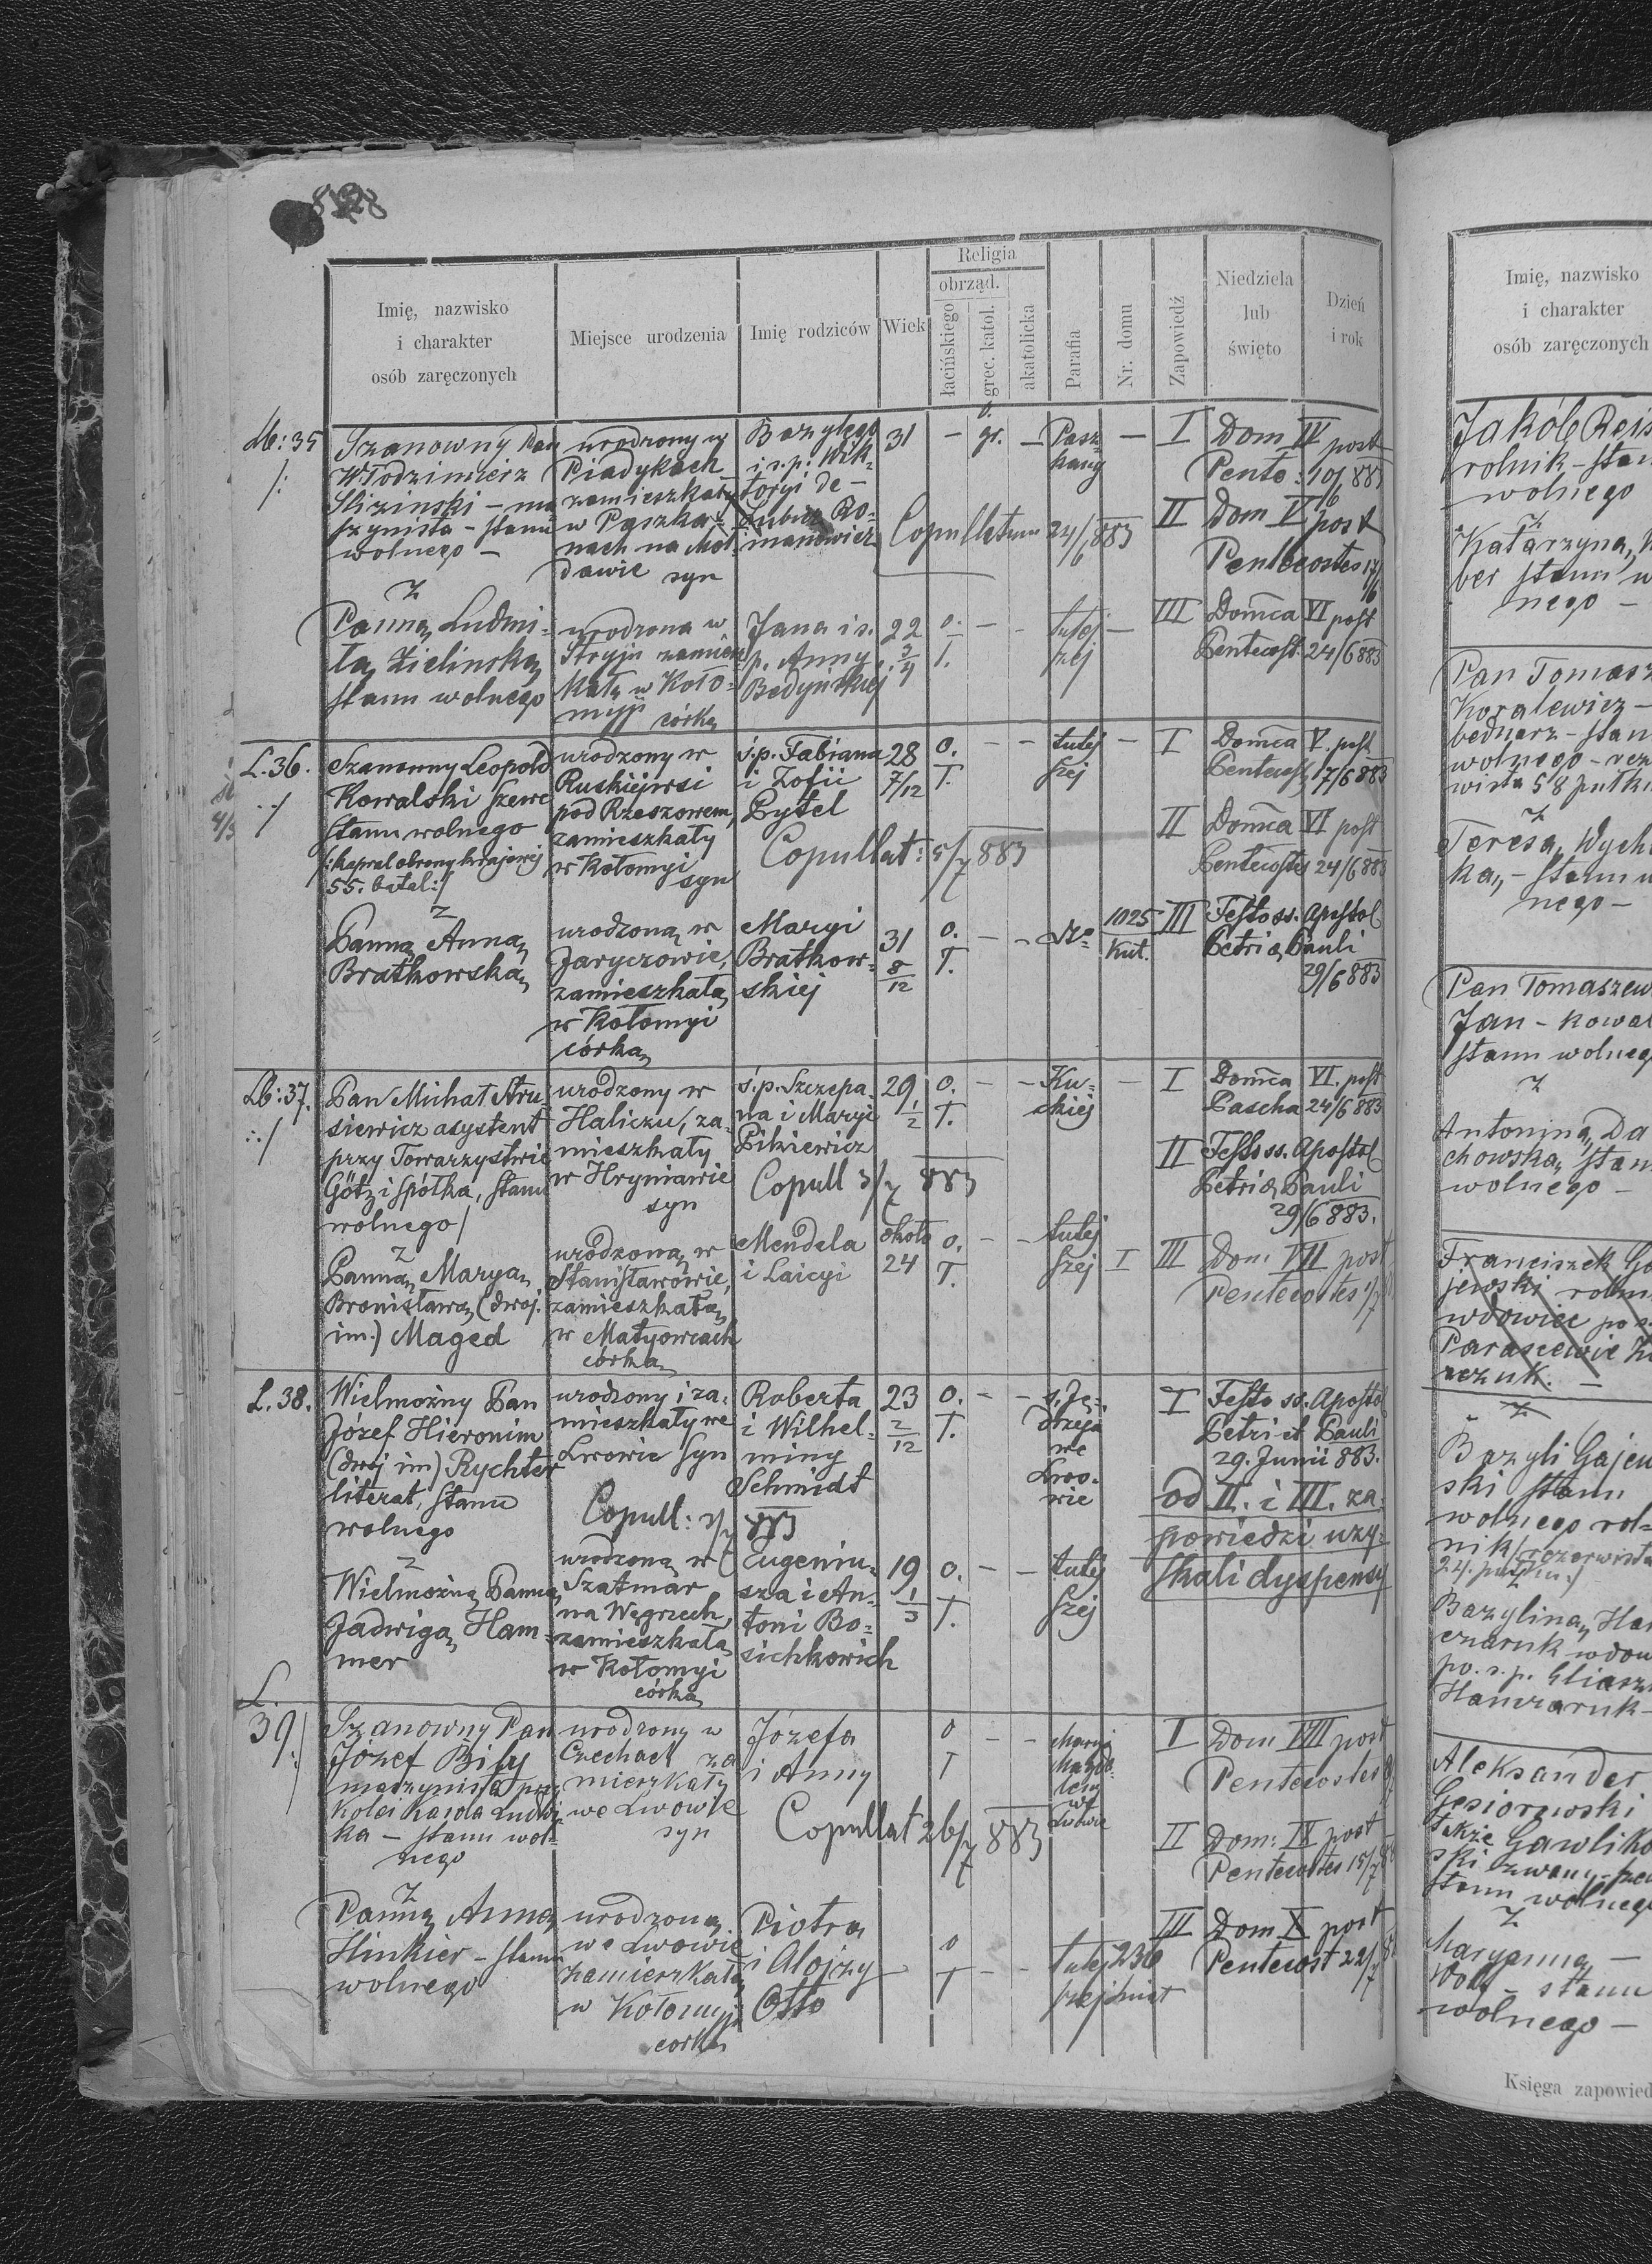 Religia
obrząd.
Imię, nazwisko
i charakter
osób zaręczonych
Miejsce urodzenia
Imię rodziców
Wiek
łacińskiego
grec. katol.
akatolicka
Parafia
Nr. domu
Zapowiedź
Niedziela
lub
święto
Dzień
i rok
Lb: 35
Szanowny Pan
Włodzimierz
Slizinski – ma
szynista – stanu
wolnego –
urodzony w
Piadykach
zamieszkały
w Paszka-
nach na Moł-
dawie syn
Bazylego
i ś.p. Wik-
toryi de –
Lubicz Ro-
manowicz
31 – gr. – Pasz
kany –
Copullatum 24/6 883
I Dom IV post
Pente: 10/6 883
II Dom V post
Pentecostes 17/6
z
Panną Ludmi-
łą Zielinską
stanu wolnego
urodzona w
Stryju zamiesz
kałą w Koło-
myji córką
Jana i ś.
p. Anny
Bedyńskiej
22 3/4
o. ł. – –
tutej
szej –
III Domca VI post
Pentecost. 24/6 883
L. 36.
Szanowny Leopold
Kowalski szewc
stanu wolnego
/:kapral obrony krajowej
55. batal:/
urodzony w
Ruskiejwsi
pod Rzeszowem,
zamieszkały
w Kołomyi
syn
ś.p. Fabiana
i Zofii
Pytel
28 7/12
o. ł. – –
tutej
szej –
Copullat: 5/7 883
I Domca V. post
Pentecost. 17/6 883
II Domca VI post
Pentecostes 24/6 883
z
Panną Anną
Bratkowską
urodzoną w
Jaryczowie,
zamieszkałą
w Kołomyi
córką
Maryi
Bratkow-
skiej
31 8/12
o. ł. – –
1025
Kut.
III Festo ss. Apostol
Petri & Pauli
29/6 883
Lb: 37.
Pan Michał Stru
siewicz asystent
przy Towarzystwie
Götz i Spółka, stanu
wolnego/
urodzony w
Haliczu, za-
mieszkały
w Hryniawie
syn
ś.p. Szczepa-
na i Maryi
Pikiewicz
29 1/2
o. ł. – –
Ku-
ckiej –
Copull 3/7 883
I Domca VI. post
Pascha 24/6 883
II Festo ss. Apostol
Petri & Pauli
29/6 883.
z
Panną Maryą
Bronisławą (dwoj.
im.) Maged
urodzoną w
Stanisławowie,
zamieszkałą
w Matyowcach
córką
Mendela
i Laicyi
około
24
o. ł. – –
tutej
szej I
III Dom VII post
Pentecostes 1/7
L. 38.
Wielmożny Pan
Józef Hieronim
(dwoj im) Rychter
literat, stanu
wolnego
urodzony i za-
mieszkały we
Lwowie syn
Roberta
i Wilhel-
miny
Schmidt
23 2/12
o. ł. – –
s. Ję-
drzeja
we
Lwo-
wie
Copull: 3/7 883
I Festo ss. Apostol
Petri et Pauli
29. Junii 883.
od II. i III. za-
powiedzi uzy-
skali dyspensy
z
Wielmożną Panną
Jadwigą Ham-
mer
urodzoną w
Szatmár
na Węgrzech,
zamieszkałą
w Kołomyi
córką
Eugeniu-
sza i An-
toni Bo-
sichkowich
19 1/3
o. ł. – –
tutej
szej
L.
39
Szanowny Pan
Józef Bily
maszynista przy
kolei Karola Ludwi
ka – stanu wol-
nego
urodzony w
Czechach za
mieszkały
we Lwowie
syn
Józefa
i Anny
o ł – –
Maryi
Magda
leny
we
Lwowie
Copullat 26/7 883
I Dom VIII post
Pentecostes
II Dom: IX post
Pentecostes 15/7
z
Panną Anną
Hinkier – stanu
wolnego
urodzoną
we Lwowie
zamieszkałą
w Kołomyji
córką
Piotra
i Alojzy
Otto
o ł – –
tutej
szej
236
miast
III Dom X post
Pentecost 22/7
Imię, nazwisko
i charakter
osób zaręczonych
Jakób Reis
rolnik – stan
wolnego
z
Katarzyną
ber stanu w
nego –
Pan Tomasz
Koralewicz –
bednarz – stan
wolnego – rezer
wista 58 pułku
z
Teresą Wych
ką, – stanu w
nego –
Pan Tomaszew
Jan – kowal
stanu wolneg
z
Antoniną Da
chowską stan
wolnego –
Franciszek Ga
jewski rolni
wdowiec po ś.
Parascewie
rczuk. –
z
Bazyli Gajew
ski stanu
wolnego rol-
nik/rezerwista
24. pułku/
z
Bazyliną Han
czaruk wdow
po ś.p. Eliasz
Hanczaruk –
Aleksander
Gęsiorowski
także Gawliko
ski zwany –
stanu wolnego
z
Maryanną –
Wolf – stanu
wolnego –
Księga zapowied